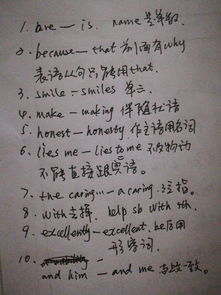 1. are — is. name是单数.
2. because — that 前面有why
表语从句只能用that.
3. smile — smiles 单三.
4. make — making 伴随状语
5. honest — honesty 作主语用名词
6. lies me — lies to me 不及物动
不能直接跟宾语.
7. the caring... — a caring. 泛指.
8. with 去掉. help sb with sth.
9. excellently — excellent. be后用
形容词.
10. and him — and me 与故一致.